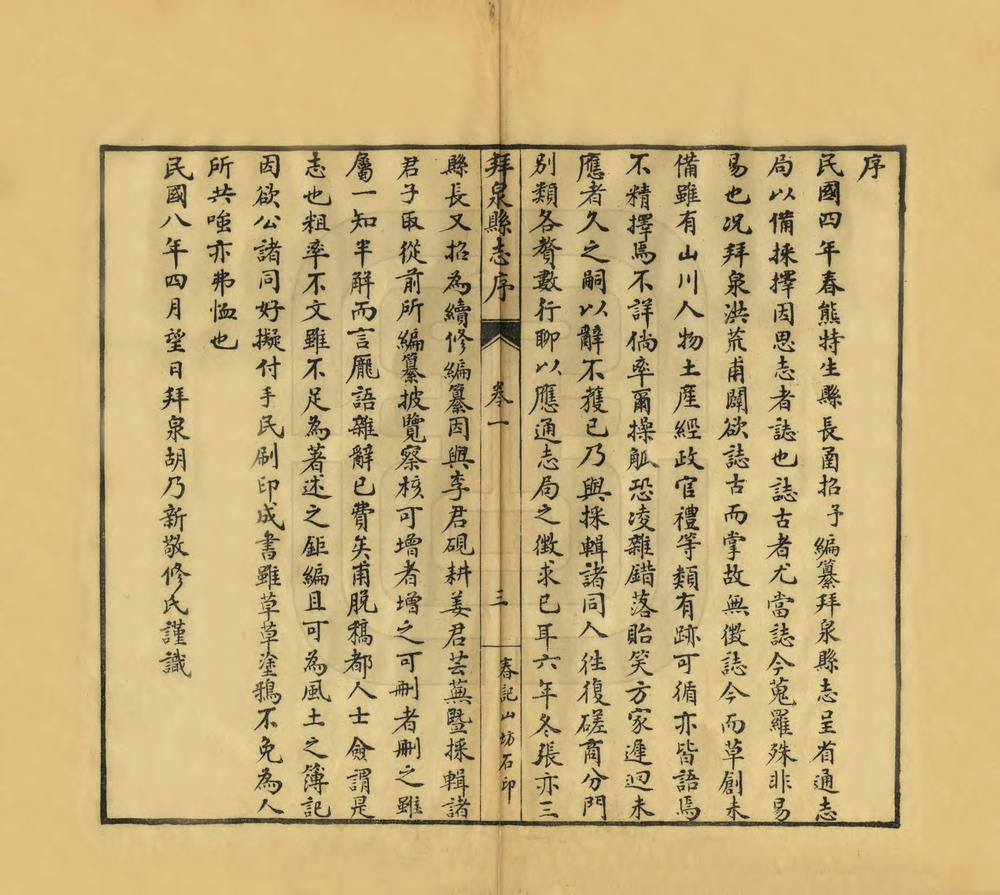 序
民國四年春熊特生縣長函招予編纂拜泉縣志呈省通志
局以備採擇因思志者誌也誌古者尤當誌今蒐羅殊非易
易也况拜泉洪荒甫闢欲誌古而掌故無徵誌今而草創未
備雖有山川人物土產經政官禮等類有跡可循亦皆語焉
不精擇焉不詳倘率爾操觚恐凌雜錯落貽笑方家遲迴未
應者久之嗣以辭不獲已乃與採輯諸同人往復磋商分門
別類各贅數行聊以應通志局之徵求已耳六年冬張亦三
拜泉縣志序 卷一 三 春記山坊石印
縣長又招為續修編纂因與李君硯耕姜君芸蕪暨採輯諸
君子取從前所編纂披覽察核可增者增之可刪者刪之雖
屬一知半解而言厖語雜辭已費矣甫脫稿都人士僉謂是
志也粗率不文雖不足為著述之鉅編且可為風土之簿記
因欲公諸同好擬付手民刷印成書雖草草塗鴉不免為人
所共嗤亦弗恤也
民國八年四月望日拜泉胡乃新敬修氏謹識